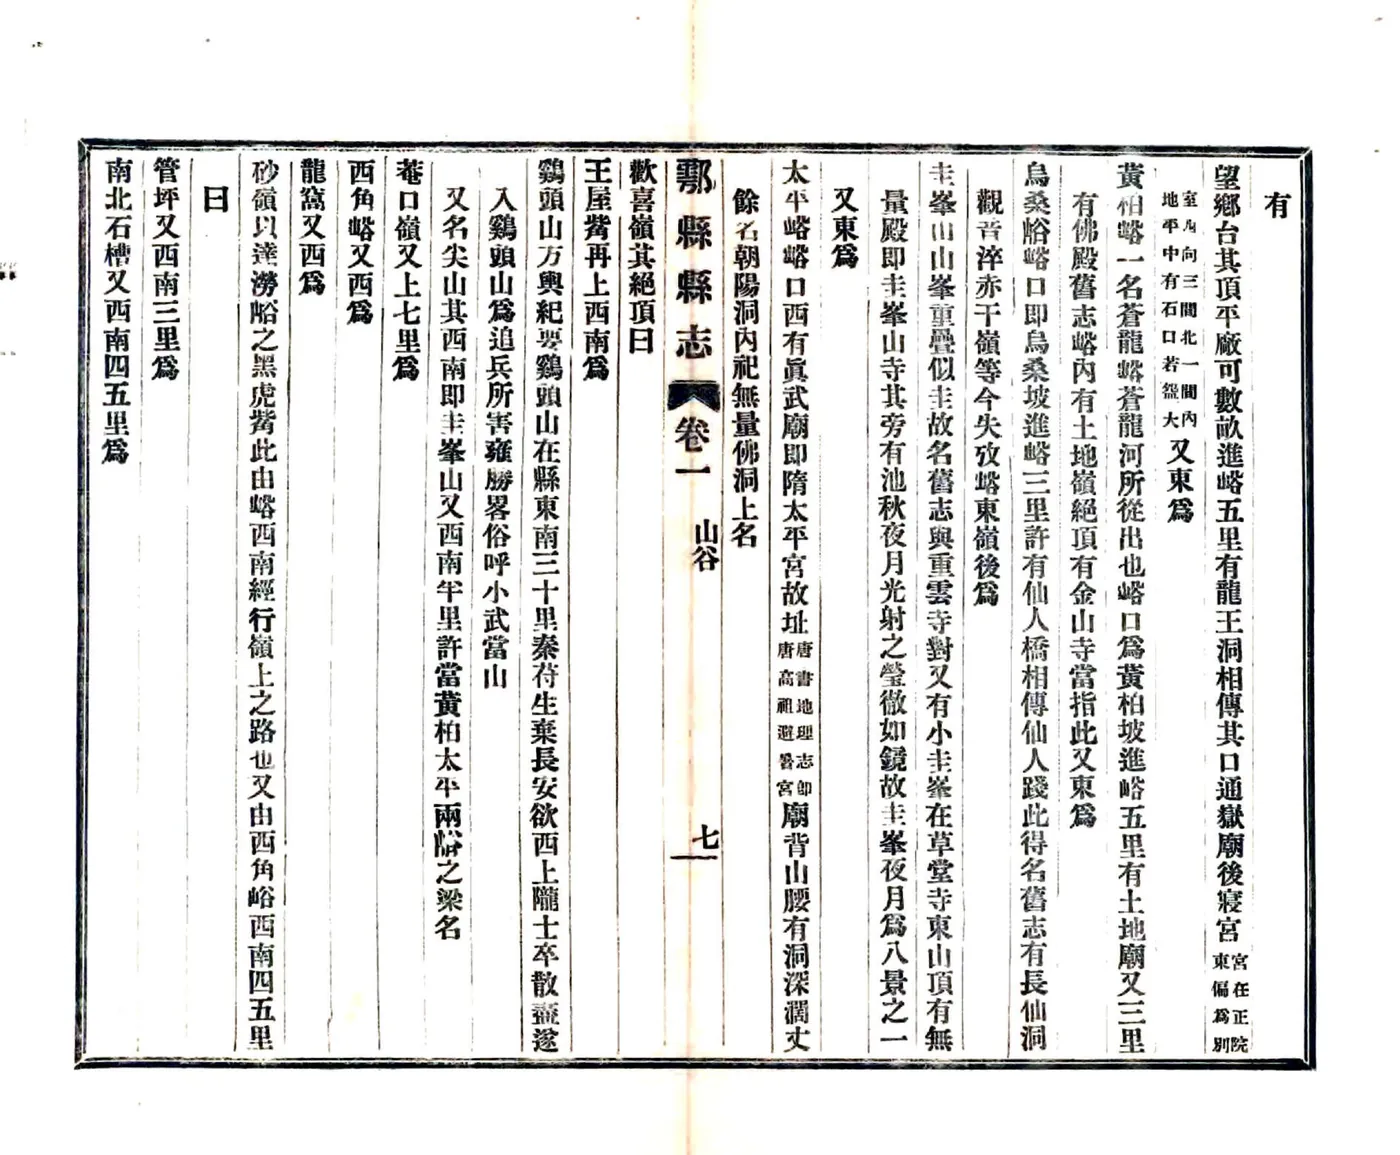 有
望鄉台其頂平厰可數畝進峪五里有龍王洞相傳其口通嶽廟後寢宮宮在正院東偏爲別
室凡向三間北一間內地平中有石口若盌大又東爲
黃柏峪一名蒼龍峪蒼龍河所從出也峪口爲黃柏坡進峪五里有土地廟又三里
有佛殿舊志峪內有土地嶺絕頂有金山寺當指此又東爲
烏桑峪峪口即烏桑坡進峪三里許有仙人橋相傳仙人踐此得名舊志有長仙洞
觀音淬赤干嶺等今失攷峪東嶺後爲
圭峯山山峯重疊似圭故名舊志與重雲寺對又有小圭峯在草堂寺東山頂有無
量殿即圭峯山寺其旁有池秋夜月光射之瑩徹如鏡故圭峯夜月爲八景之一
又東爲
太平峪峪口西有眞武廟即隋太平宮故址唐書地理志卽唐高祖避暑宮廟背山腰有洞深濶丈
餘名朝陽洞內祀無量佛洞上名
鄠縣縣志 卷一 山谷 七
歡喜嶺其絕頂曰
王屋觜再上西南爲
鷄頭山方輿紀要鷄頭山在縣東南三十里秦苻生棄長安欲西上隴士卒散盡遂
入鷄頭山爲追兵所害雍勝畧俗呼小武當山
又名尖山其西南即圭峯山又西南半里許當黃柏太平兩峪之梁名
菴口嶺又上七里爲
西角峪又西爲
龍窩又西爲
砂嶺以達澇峪之黑虎觜此由峪西南經行嶺上之路也又由西角峪西南四五里
曰
管坪又西南三里爲
南北石槽又西南四五里爲